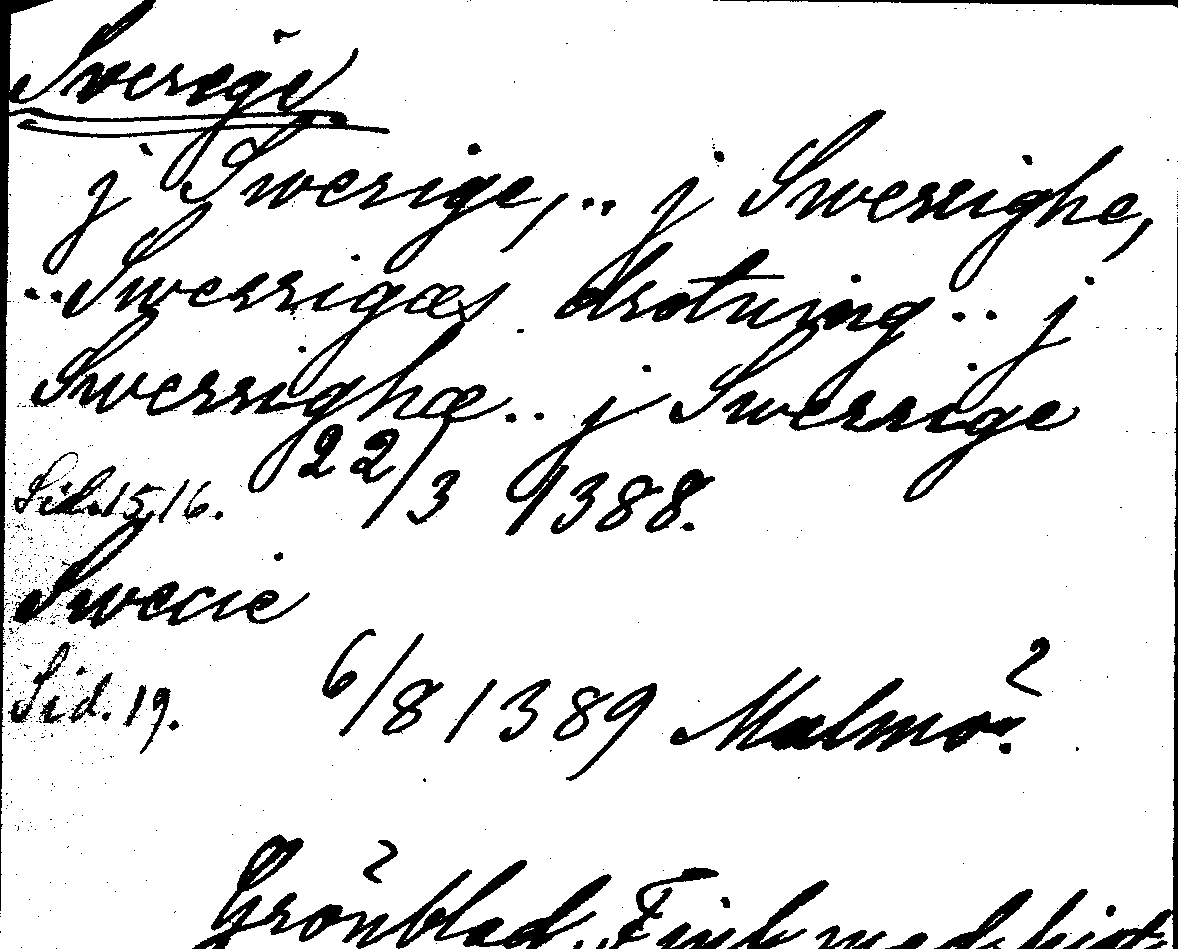 Sverige
j Swerige, .. j Swerrighe,
.. Swerrigæs drotning .. j
Swerrighæ .. j Swerrige
Sid. 15, 16. 22/3 1388.
Swecie
Sid. 19. 6/8 1389 Malmö?
Grönblad, Finl. med.hist.